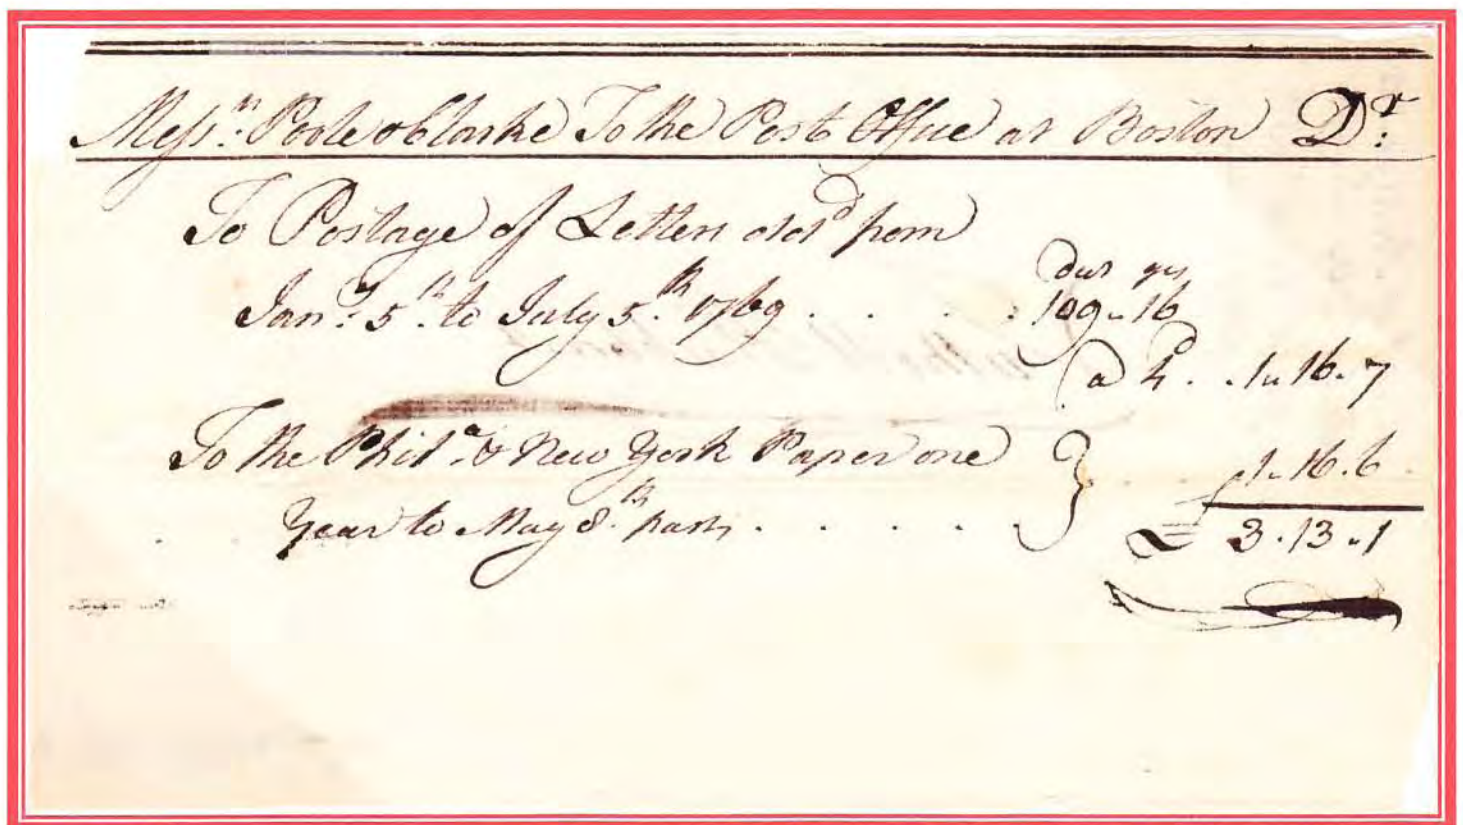 Messrs. Poole & Clarke To the Post Office at Boston Dr:
To Postage of Letters del'd from
dwt grs
Jany. 5th. to July 5th. 1769 . . . . : 109 „ 16
@ 4d. . . 1 „ 16 . 7
To the Phila. & New York Paper one } . . . 1 „ 16 . 6
Year to May 8th. past . . . . .
£ 3 . 13 „ 1